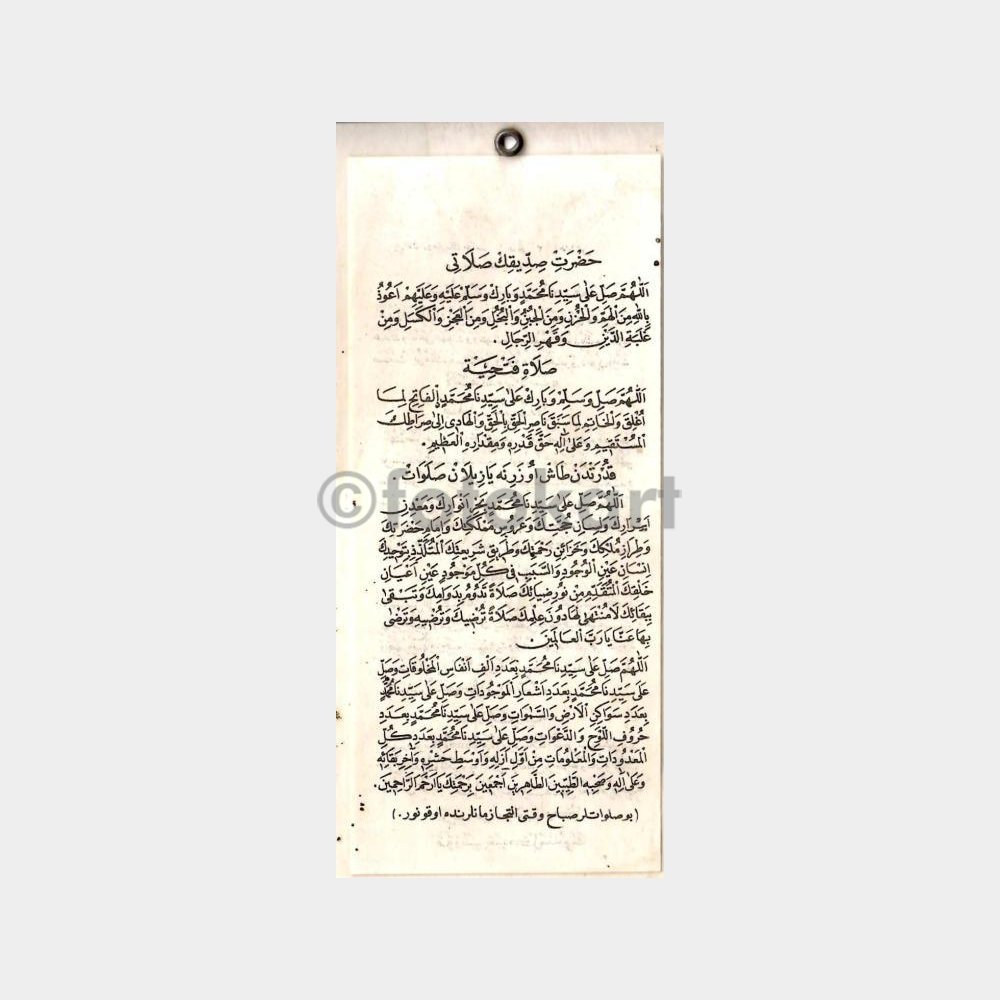 حَضْرَتِ صِدِّيقِكْ صَلَاتِى
اَللّٰهُمَّ صَلِّ عَلٰى سَيِّدِنَا مُحَمَّدٍ وَبَارِكْ وَسَلِّمْ عَلَيْهِ وَعَلَيْهِمْ اَعُوذُ
بِاللّٰهِ مِنَ الْهَمِّ وَالْحُزْنِ وَمِنَ الْجُبْنِ وَالْبُخْلِ وَمِنَ الْعَجْزِ وَالْكَسَلِ وَمِنْ
غَلَبَةِ الدَّيْنِ وَقَهْرِ الرِّجَالِ .
صَلَاةِ فَتْحِيَّة
اَللّٰهُمَّ صَلِّ وَسَلِّمْ وَبَارِكْ عَلٰى سَيِّدِنَا مُحَمَّدٍ اِلْفَاتِحِ لِمَا
اُغْلِقَ وَالْخَاتِمِ لِمَا سَبَقَ نَاصِرِ الْحَقِّ بِالْحَقِّ وَالْهَادِى اِلٰى صِرَاطِكَ
الْمُسْتَقِيمِ وَعَلٰى اٰلِهِ حَقَّ قَدْرِهِ وَمِقْدَارِهِ الْعَظِيمِ .
قُدْرَتْدَنْ طَاشْ اُوزَرِنَه يَازِيلَانْ صَلَوَاتْ .
اَللّٰهُمَّ صَلِّ عَلٰى سَيِّدِنَا مُحَمَّدٍ بَحْرِ اَنْوَارِكَ وَمَعْدِنِ
اَسْرَارِكَ وَلِسَانِ حُجَّتِكَ وَعَرُوسِ مَمْلَكَتِكَ وَاِمَامِ حَضْرَتِكَ
وَطِرَازِ مُلْكِكَ وَخَزَائِنِ رَحْمَتِكَ وَطَرِيقِ شَرِيعَتِكَ الْمُتَلَذِّذِ بِتَوْحِيدِكَ
اِنْسَانِ عَيْنِ الْوُجُودِ وَالسَّبَبِ فِى كُلِّ مَوْجُودٍ عَيْنِ اَعْيَانِ
خَلْقِكَ الْمُتَقَدِّمِ مِنْ نُورِ ضِيَائِكَ صَلَاةً تَدُومُ بِدَوَامِكَ وَتَبْقٰى
بِبَقَائِكَ لَا مُنْتَهٰى لَهَا دُونَ عِلْمِكَ صَلَاةً تُرْضِيكَ وَتُرْضِيهِ وَتَرْضٰى
بِهَا عَنَّا يَا رَبَّ الْعَالَمِينَ
اَللّٰهُمَّ صَلِّ عَلٰى سَيِّدِنَا مُحَمَّدٍ بِعَدَدِ اَلْفِ اَنْفَاسِ الْمَخْلُوقَاتِ وَصَلِّ
عَلٰى سَيِّدِنَا مُحَمَّدٍ بِعَدَدِ اَشْعَارِ الْمَوْجُودَاتِ وَصَلِّ عَلٰى سَيِّدِنَا مُحَمَّدٍ
بِعَدَدِ سَوَاكِنِ الْاَرْضِ وَالسَّمٰوَاتِ وَصَلِّ عَلٰى سَيِّدِنَا مُحَمَّدٍ بِعَدَدِ
حُرُوفِ اللَّوْحِ وَالدَّعَوَاتِ وَصَلِّ عَلٰى سَيِّدِنَا مُحَمَّدٍ بِعَدَدِ كُلِّ
الْمَعْدُودَاتِ وَالْمَعْلُومَاتِ مِنْ اَوَّلِ اَزَلِهِ وَاَوْسَطِ حَشْرِهِ وَاٰخِرِ بَقَائِهِ
وَعَلٰى اٰلِهِ وَصَحْبِهِ الطَّيِّبِينَ الطَّاهِرِينَ اَجْمَعِينَ بِرَحْمَتِكَ يَا اَرْحَمَ الرَّاحِمِينَ .
( بو صلوات لر صباح وقتى التجا زمانلرنده اوقونور . )
©fotokart